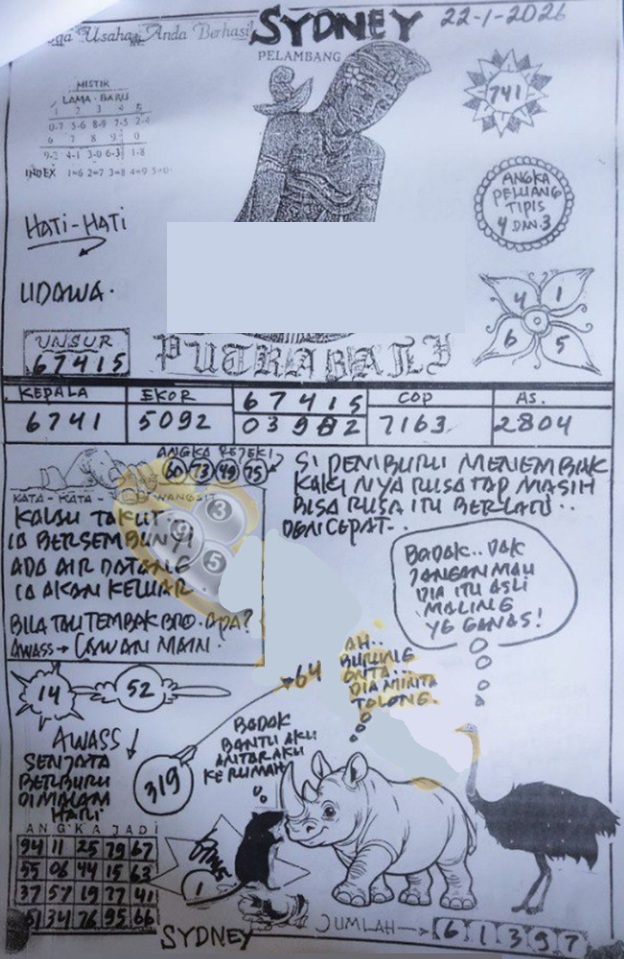 Usaha Anda Berhasil
SYDNEY
22-1-2026
PELAMBANG
MISTIK
LAMA - BARU
1 2 3 4 5
0-7 5-6 8-9 7-5 2-4
6 7 8 9 0
9-2 4-1 3-0 6-3 1-8
INDEX 1=6 2=7 3=8 4=9 5=0
741
ANGKA
PELUANG
TIPIS
4 DAN 3
HATI-HATI
UDAWA.
4 1
6 5
UNSUR
67415
PUTRA BALI
KEPALA
EKOR
67415
COP
AS.
6741
5092
03982
7163
2804
ANGKA REJEKI
60 73 49 75
KATA - KATA - WANGSIT
KALAU TAKUT
IA BERSEMBUNYI
ADA AIR DATANG
IA AKAN KELUAR
BILA TAU TEMBAK BRO. APA?
AWASS → LAWAN MAIN.
3
9
5
SI PEMBURU MENEMBAK
KAKI NYA RUSA TAP MASIH
BISA RUSA ITU BERLARI..
DGN CEPAT..
BADAK.. DAK
JANGAN MAU
DIA ITU ASLI
MALING
YG GANAS!
14
52
64
AH..
BURUNG
ONTA...
DIA MINTA
TOLONG.
AWASS
SENJATA
BERBURU
DI MALAM
HARI
319
BADAK
BANTU AKU
ANTAR AKU
KE RUMAH
ANGKA JADI
94 11 25 79 67
55 06 44 15 63
37 57 19 27 41
51 34 76 95 66
1
SYDNEY
JUMLAH → 6 1 3 9 7